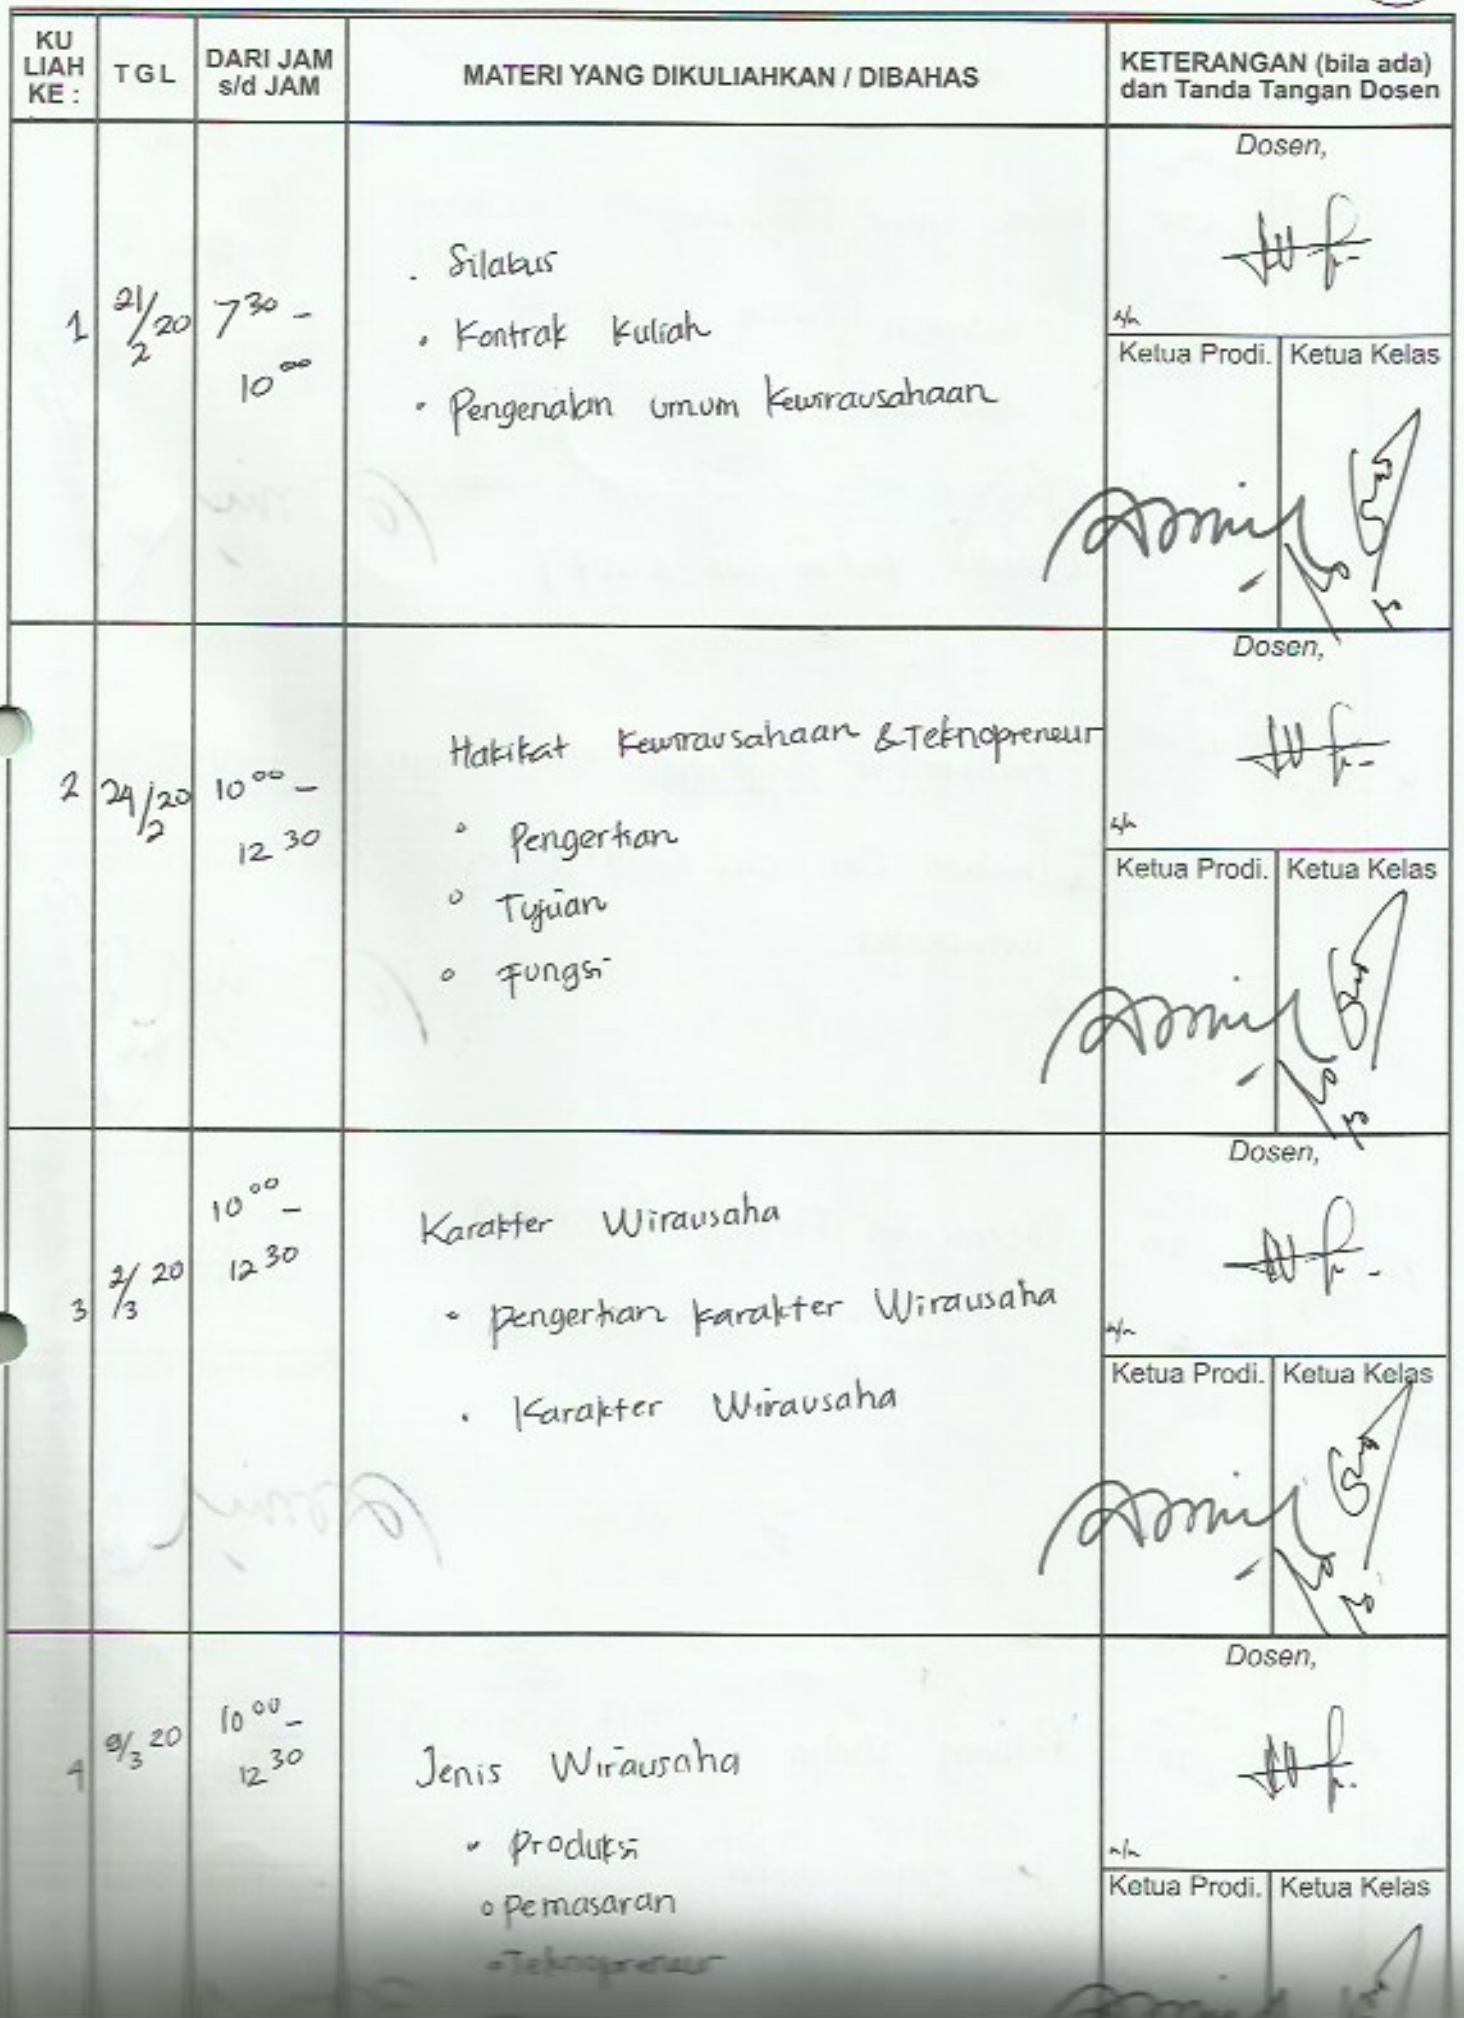 KU
LIAH
KE :
TGL
DARI JAM
s/d JAM
MATERI YANG DIKULIAHKAN / DIBAHAS
KETERANGAN (bila ada)
dan Tanda Tangan Dosen
1
21/2 20
7 30 -
10 00
. Silabus
. Kontrak Kuliah
. Pengenalan umum Kewirausahaan
Dosen,
Ketua Prodi.
Ketua Kelas
2
24/2 20
10 00 -
12 30
Hakikat Kewirausahaan & Teknopreneur
° Pengertian
° Tujuan
° Fungsi
Dosen,
Ketua Prodi.
Ketua Kelas
3
2/3 20
10 00 -
12 30
Karakter Wirausaha
• Pengertian karakter Wirausaha
• Karakter Wirausaha
Dosen,
Ketua Prodi.
Ketua Kelas
4
9/3 20
10 00 -
12 30
Jenis Wirausaha
• Produksi
° Pemasaran
° Teknopreneur
Dosen,
Ketua Prodi.
Ketua Kelas